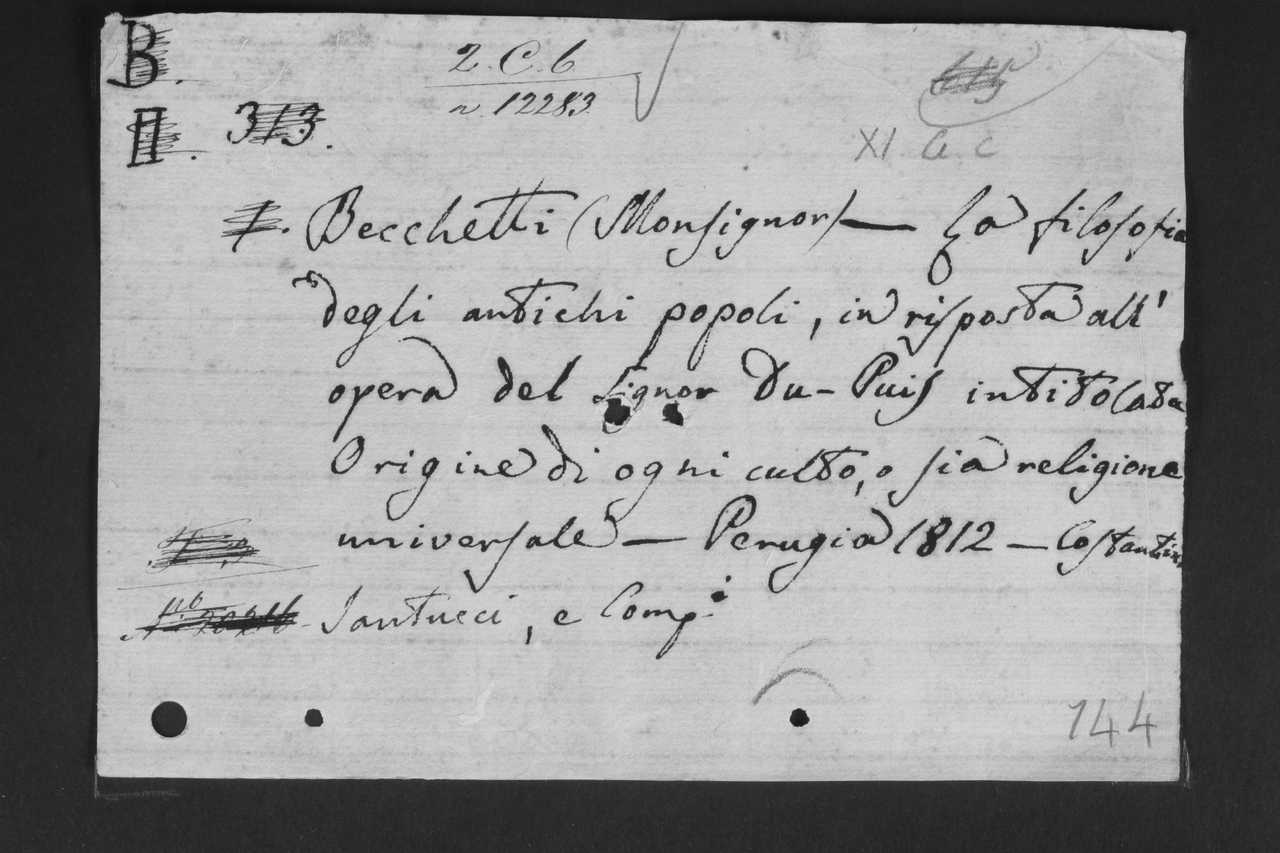 B.
2. C. 6
n. 12283
II. 313.
XI. a. c
I. Becchetti (Monsignor) — La filosofia
degli antichi popoli, in risposta all'
opera del Signor Du-Puis intitolata
Origine di ogni culto, o sia religione
universale — Perugia 1812 — Costantini
Santucci, e Comp.i
144